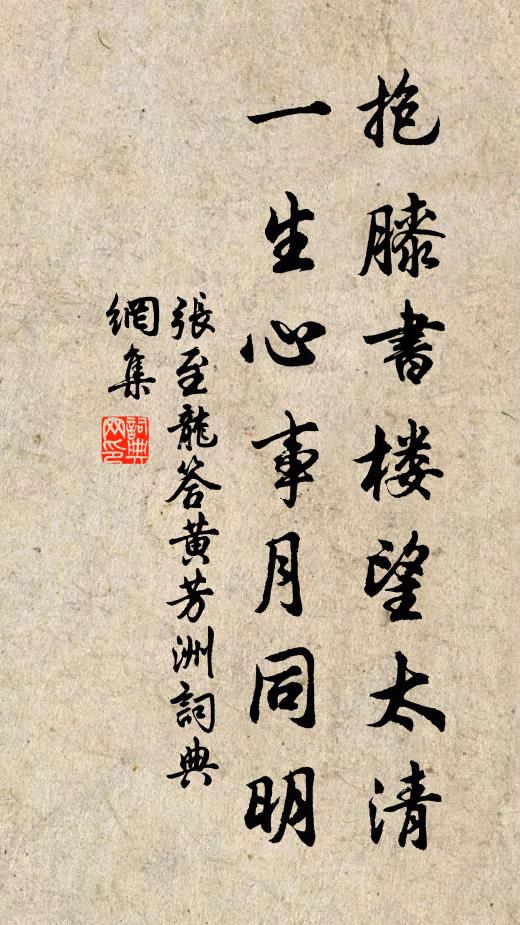 抱膝書楼望太清
一生心事月同明
張至龍答黄芳洲詞典
網集
詞典
网印